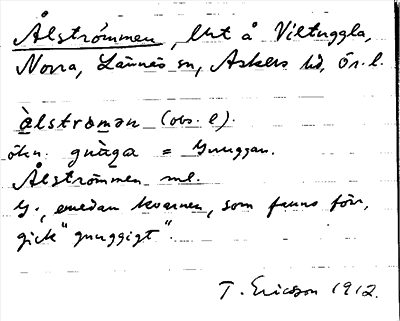 Ålströmmen, lht å Viltuggla,
Norra, Lännäs sn, Askers hd, Ör. l.
àlstrømən (obs. e).
ökn. gnàga = Gnuggan.
Ålströmmen ml.
G., emedan kvarnen, som fanns förr,
gick "gnuggigt".
T. Ericsson 1912.